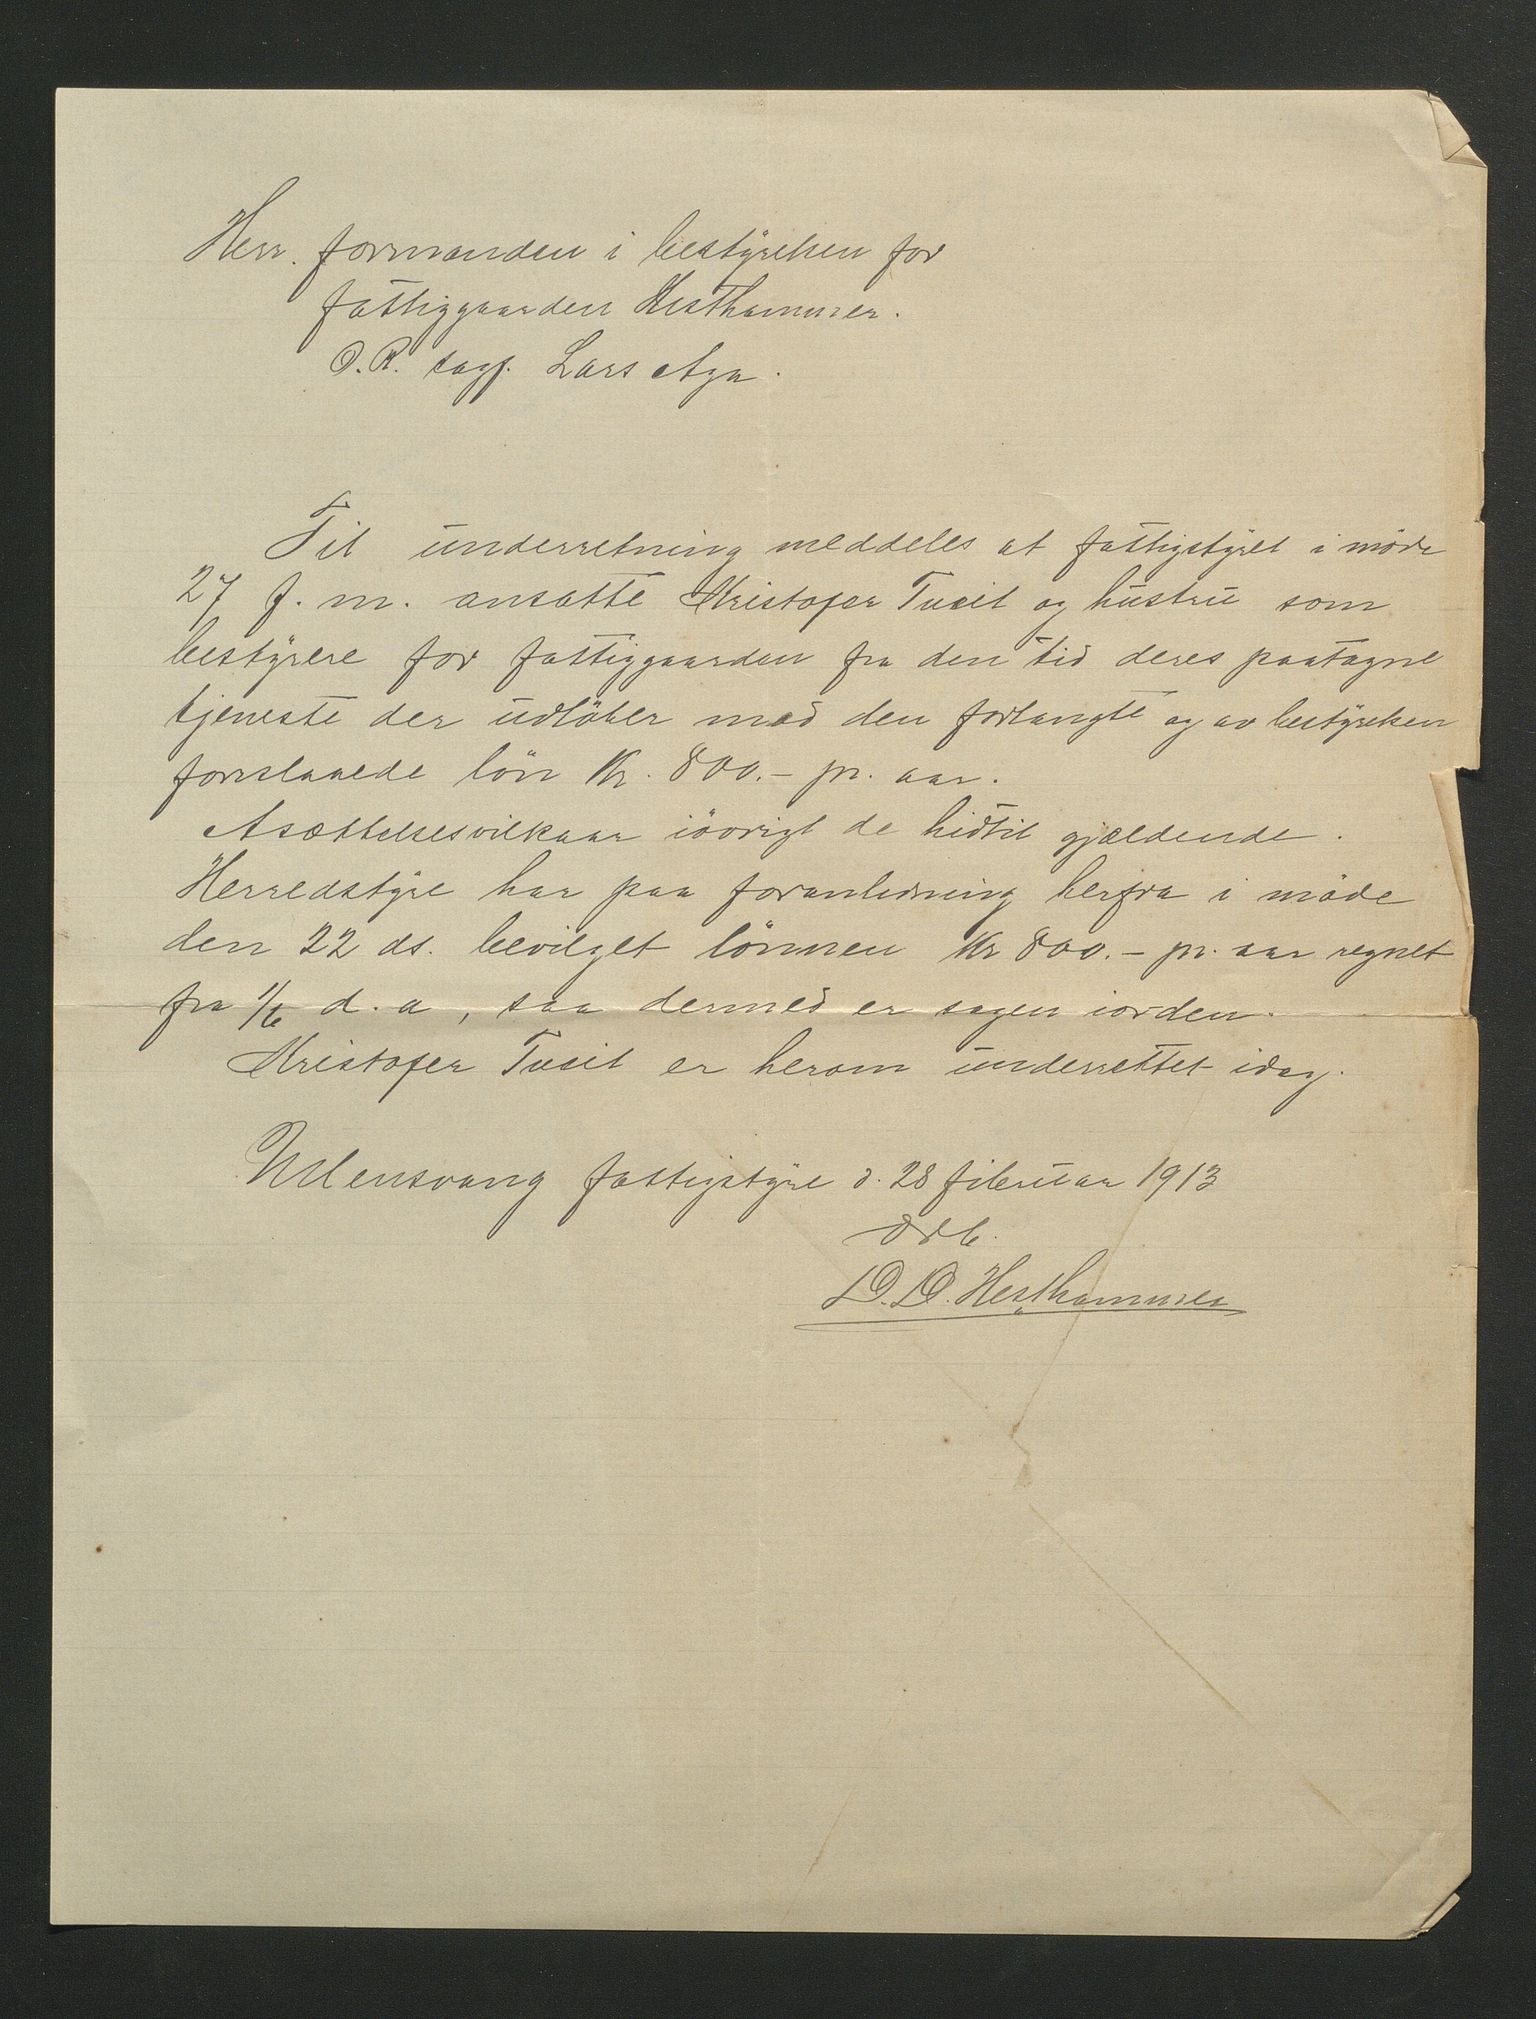 Herr. formanden i bestÿrelsen for
fattiggaarden Hesthammer.
O.R. sagf. Lars Aga.
Til underretning meddeles at fattigstÿret i möde
27 f. m. ansatte Kristofer Tveit og hustru som
bestÿrere for fattiggaarden fra den tid deres paatagne
tjeneste der udlöber med den forlangte og av bestÿrelsen
forrslaaede lön Kr. 800.- pr. aar.
Asættelsesvilkaar iövrigt de hidtil gjældende.
Herredstÿre har paa foranledning herfra i möde
den 22 ds. bevilget lönnen Kr 800.- pr. aar regnet
fra 1/6 d. a, saa dermed er sagen iorden.
Kristofer Tveit er herom underrettet idag.
Ullensvang fattigstÿre d. 28 februar 1913
D. D. Hesthammer